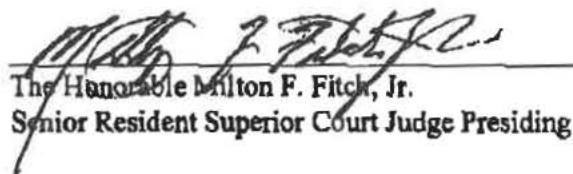 The Honorable Milton F. Fitch, Jr.
Senior Resident Superior Court Judge Presiding